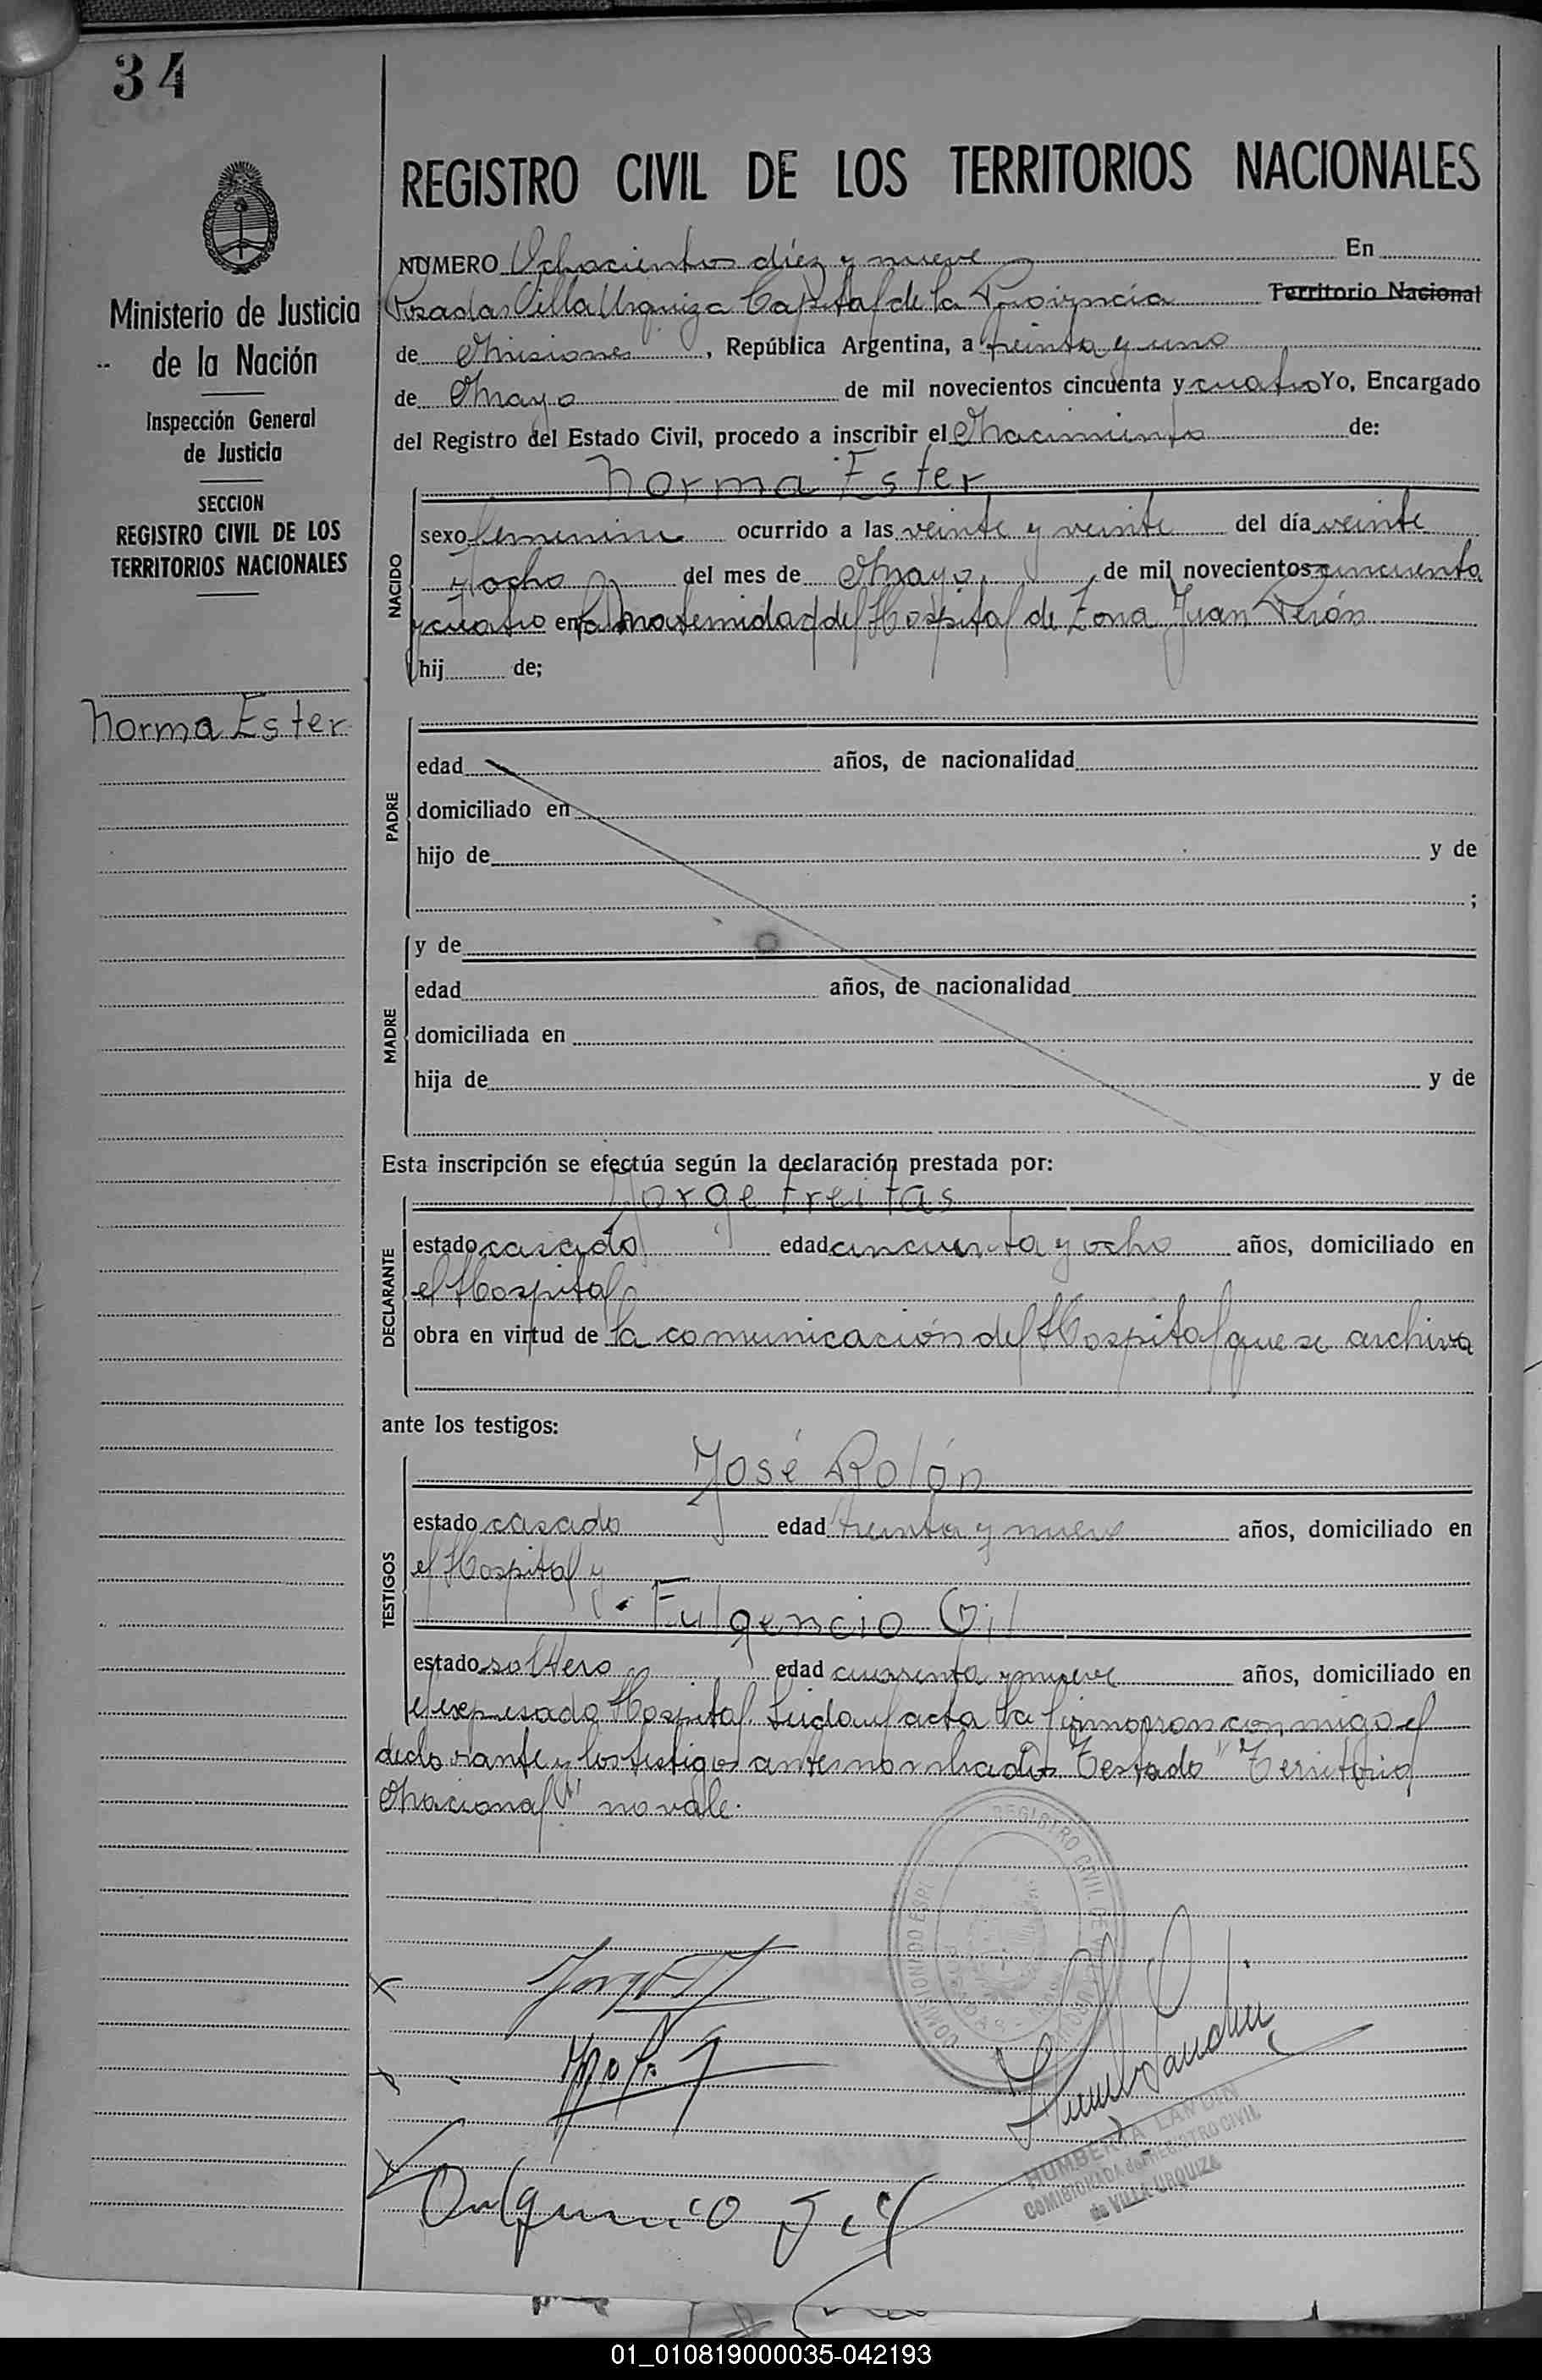 34
REGISTRO CIVIL DE LOS TERRITORIOS NACIONALES
Ministerio de Justicia
de la Nación
Inspección General
de Justicia
SECCION
REGISTRO CIVIL DE LOS
TERRITORIOS NACIONALES
Norma Ester
NUMERO Ochocientos diéz y nueve En
Posadas Villa Urquiza Capital de la Provincia Territorio Nacional
de Misiones, República Argentina, a treinta y uno
de Mayo de mil novecientos cincuenta y cuatro Yo, Encargado
del Registro del Estado Civil, procedo a inscribir el Nacimiento de:
Norma Ester
NACIDO
sexo femenino ocurrido a las veinte y veinte del día veinte
y ocho del mes de Mayo, de mil novecientos cincuenta
y cuatro en la Maternidad del Hospital de Zona Juan Perón
hij de;
PADRE
edad años, de nacionalidad
domiciliado en
hijo de y de
;
MADRE
y de
edad años, de nacionalidad
domiciliada en
hija de y de
Esta inscripción se efectúa según la declaración prestada por:
Jorge Freitas
DECLARANTE
estado casado edad cincuenta y ocho años, domiciliado en
el Hospital
obra en virtud de la comunicación del Hospital que se archiva
ante los testigos:
José Rolón
TESTIGOS
estado casado edad treinta y nueve años, domiciliado en
el Hospital y
Fulgencio Gil
estado soltero edad cuarenta y nueve años, domiciliado en
el expresado Hospital. Leida el acta la firmaron conmigo el
declarante y los testigos antes nombrados Testado "Territorio
Nacional" no vale.
REGISTRO CIVIL DE
COMISIONADO
Fulgencio Gil
HUMBERTA LANDIN
COMISIONADA del REGISTRO CIVIL
de VILLA URQUIZA
01_010819000035-042193